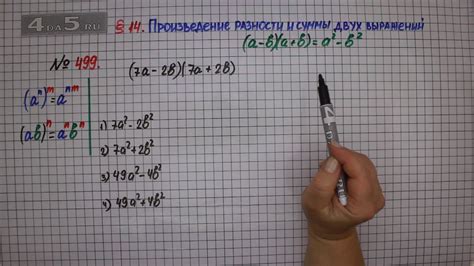 4DA5.RU
§ 14. Произведение разности и суммы двух выражений
(a-b)(a+b)=a²-b²
№ 499.
(7a-2b)(7a+2b)
(aⁿ)ᵐ=aⁿᵐ
(ab)ⁿ=aⁿbⁿ
1) 7a²-2b²
2) 7a²+2b²
3) 49a²-4b²
4) 49a²+4b²